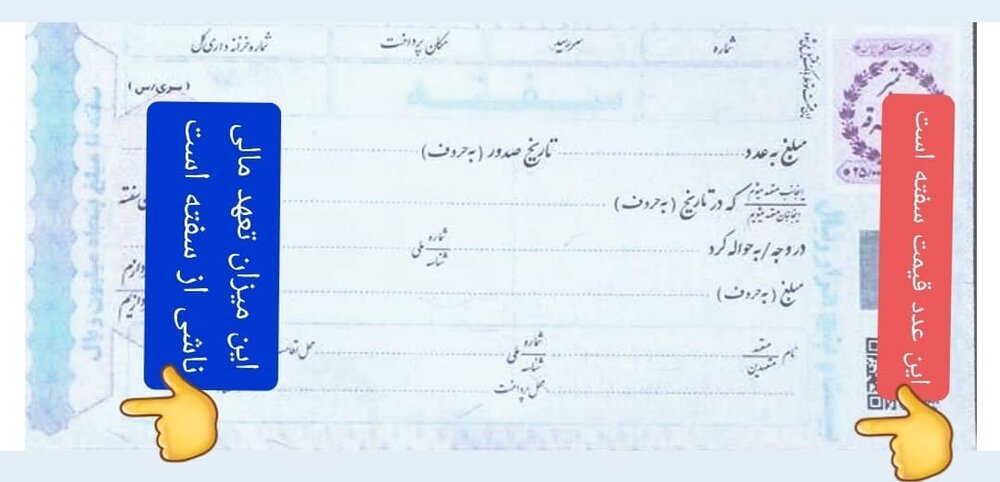 شماره
سررسید
مکان پرداخت
شماره خزانه داری کل
سفته
(سری/س)
مبلغ به عدد
تاریخ صدور (به حروف)
اینجانب متعهد میشوم
اینجانبان متعهد میشویم
که در تاریخ (به حروف)
سفته
در وجه / به حواله کرد
شماره ملی
شناسه
مبلغ (به حروف)
دازم
دازیم
نام
متعهد
متعهدین
شماره ملی
شناسه
محل اقا
محل پرداخت
این عدد قیمت سفته است
این میزان تعهد مالی
ناشی از سفته است